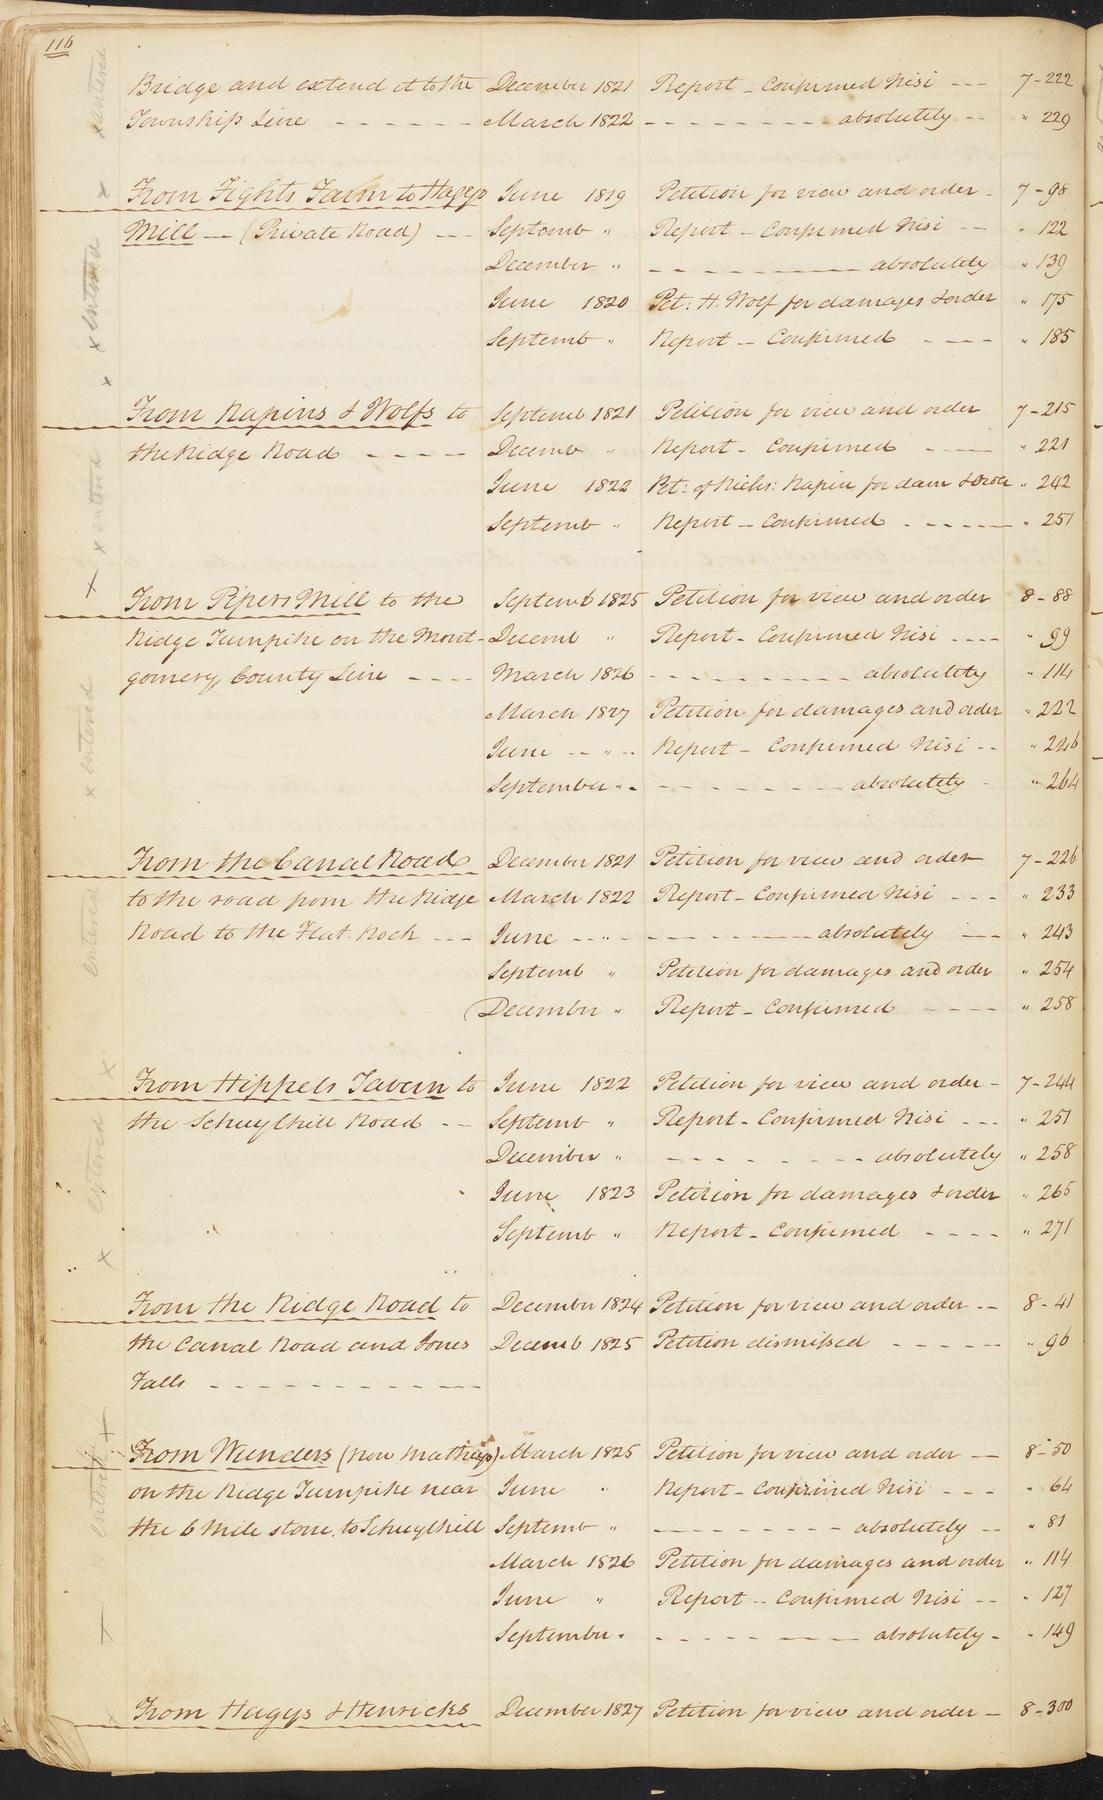 116
Bridge and extend it to the December 1821 Report - Confirmed Nisi --- 7-222
Township Line ------ March 1822 -------- absolutely -- " 229
From Fights Farm to Hagys June 1819 Petition for view and order - 7-98
Mill -- (Private Road) --- Septemb " Report - Confirmed Nisi -- " 122
December " -------- absolutely " 139
June 1820 Pet: H. Wolf for damages & order " 175
Septemb " Report - Confirmed ---- " 185
From Rapins & Wolfs to Septemb 1821 Petition for view and order 7-215
the Ridge Road ---- Decemb " Report - Confirmed ---- " 221
June 1822 Pet: of Nichs: Rapin for dam & order " 242
Septemb " Report - Confirmed ----- " 251
From Pipers Mill to the Septemb 1825 Petition for view and order 8-88
Ridge Turnpike on the Mont- Decemb " Report - Confirmed Nisi ---- " 99
gomery County Line ---- March 1826 -------- absolutely " 114
March 1827 Petition for damages and order " 222
June -- " -- Report - Confirmed Nisi -- " 246
September " - -------- absolutely - " 264
From the Canal Road December 1821 Petition for view and order 7-226
to the road from the Ridge March 1822 Report - Confirmed Nisi --- " 233
Road to the Flat Rock --- June -- " - -------- absolutely -- " 243
Septemb " Petition for damages and order " 254
December " Report - Confirmed ---- " 258
From Hippels Tavern to June 1822 Petition for view and order - 7-244
the Schuylkill Road -- Septemb " Report - Confirmed Nisi --- " 251
December " -------- absolutely " 258
June 1823 Petition for damages & order " 265
Septemb " Report - Confirmed ---- " 271
From the Ridge Road to December 1824 Petition for view and order -- 8-41
the Canal Road and Jones Decemb 1825 Petition dismissed ----- " 96
Falls ------------
From Wunders (now Mathias) March 1825 Petition for view and order -- 8-50
on the Ridge Turnpike near June " Report - Confirmed Nisi --- " 64
the 6 Mile stone, to Schuylkill Septemb " -------- absolutely -- " 81
March 1826 Petition for damages and order " 114
June " Report -- Confirmed Nisi -- " 127
September " -------- absolutely - " 149
From Hagys & Henricks December 1827 Petition for view and order - 8-300
x entered
x entered
x entered
x entered
entered
x entered
entered